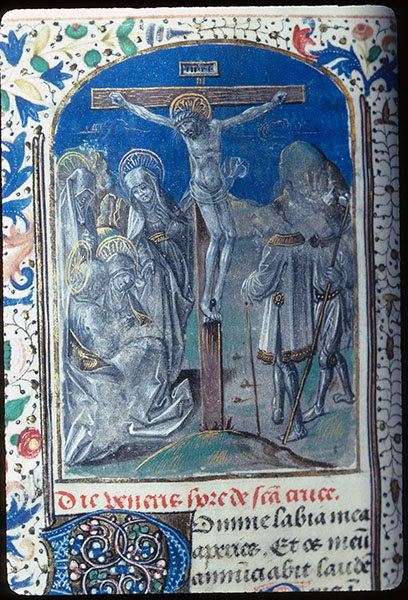 Die veneris hore de scā cruce.
Domine labia mea
aperies. Et os meū
annūciabit laudē